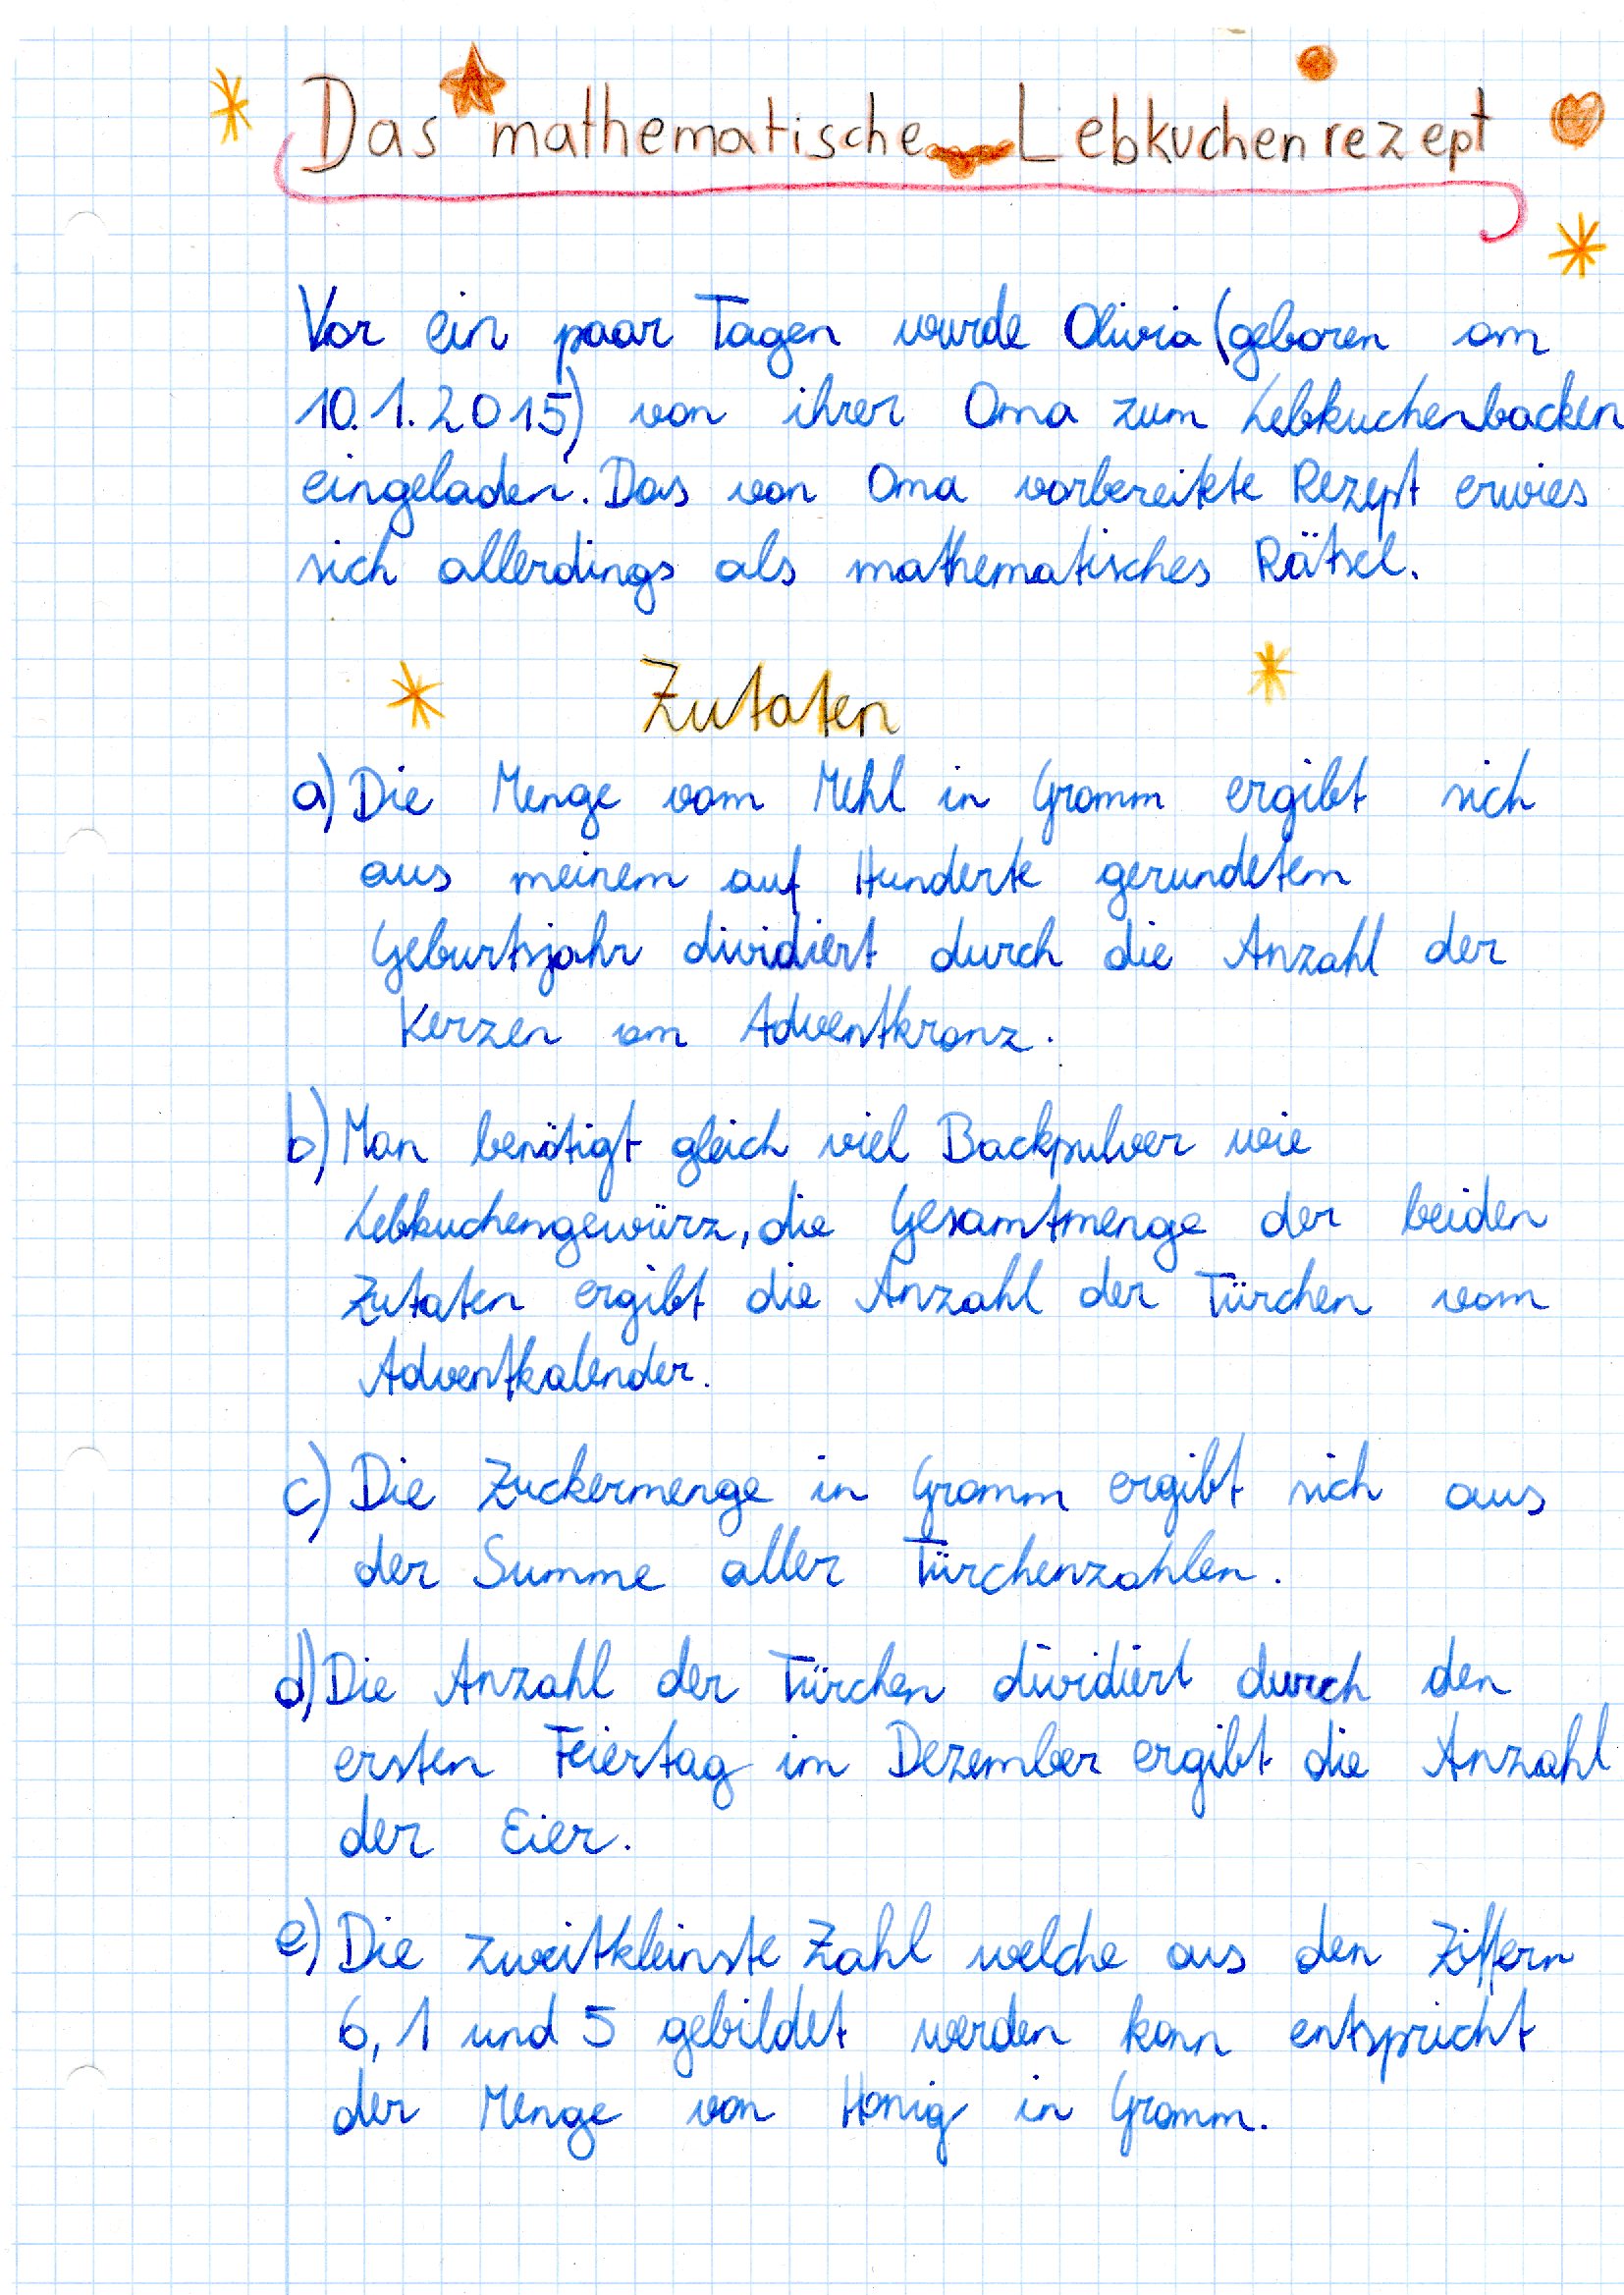 Das mathematische Lebkuchenrezept
Vor ein paar Tagen wurde Olivia (geboren am
10.1.2015) von ihrer Oma zum Lebkuchenbacken
eingeladen. Das von Oma vorbereitete Rezept erwies
sich allerdings als mathematisches Rätsel.
Zutaten
a) Die Menge vom Mehl in Gramm ergibt sich
aus meinem auf Hunderte gerundetem
Geburtsjahr dividiert durch die Anzahl der
Kerzen am Adventkranz.
b) Man benötigt gleich viel Backpulver wie
Lebkuchengewürz, die Gesamtmenge der beiden
Zutaten ergibt die Anzahl der Türchen vom
Adventkalender.
c) Die Zuckermenge in Gramm ergibt sich aus
der Summe aller Türchenzahlen.
d) Die Anzahl der Türchen dividiert durch den
ersten Feiertag im Dezember ergibt die Anzahl
der Eier.
e) Die zweitkleinste Zahl welche aus den Ziffern
6, 1 und 5 gebildet werden kann entspricht
der Menge von Honig in Gramm.